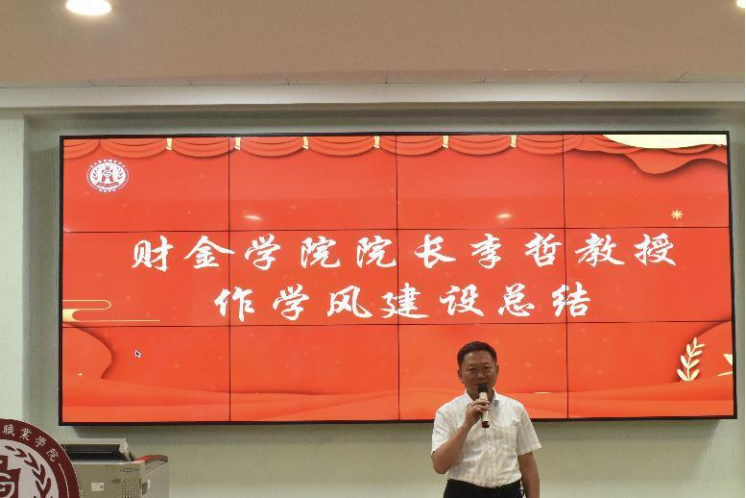 财金学院院长李哲教授
作学风建设总结
職業学院